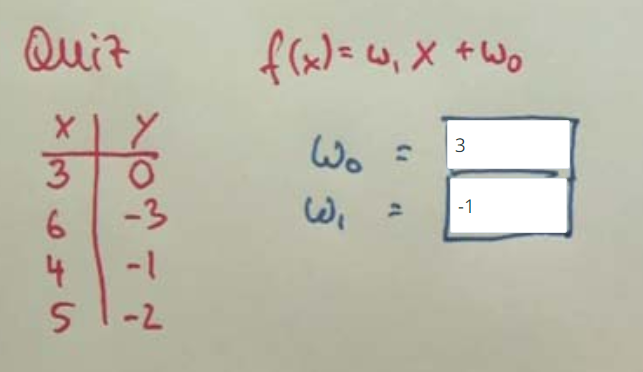 Quiz
f(x) = w₁ x + w₀
x | y
3 | 0
6 | -3
4 | -1
5 | -2
w₀ = 3
w₁ = -1